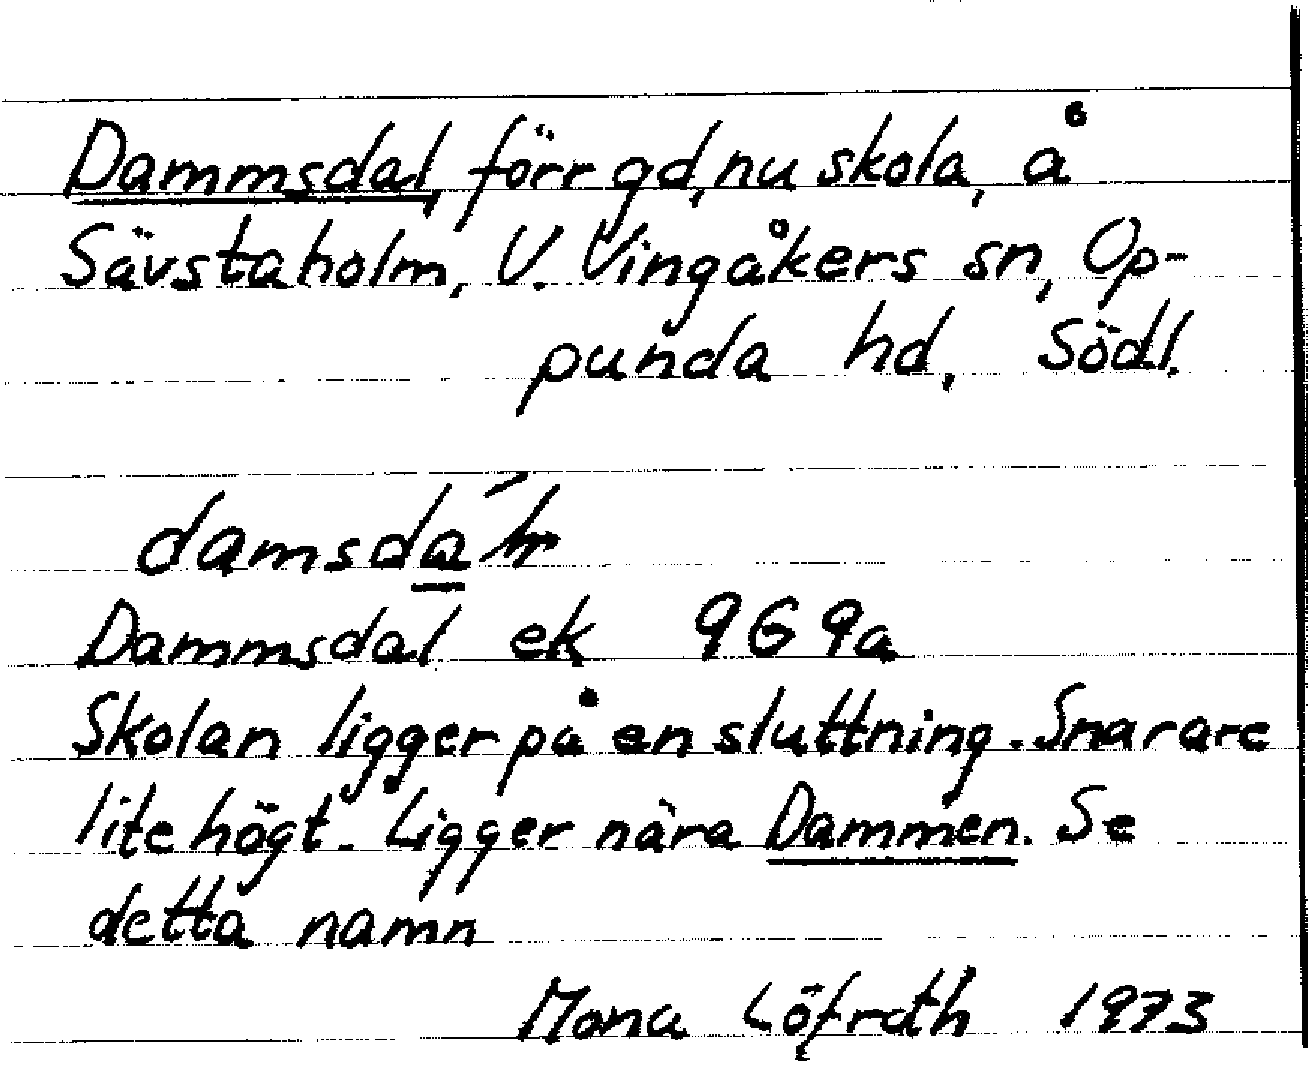 Dammsdal, förr gd, nu skola, å
Sävstaholm, V. Vingåkers sn, Op-
punda hd, Södl.
Dammsdal ek 9G 9a
Skolan ligger på en sluttning. Snarare
lite högt. Ligger nära Dammen. Se
detta namn
Mona Löfroth 1973